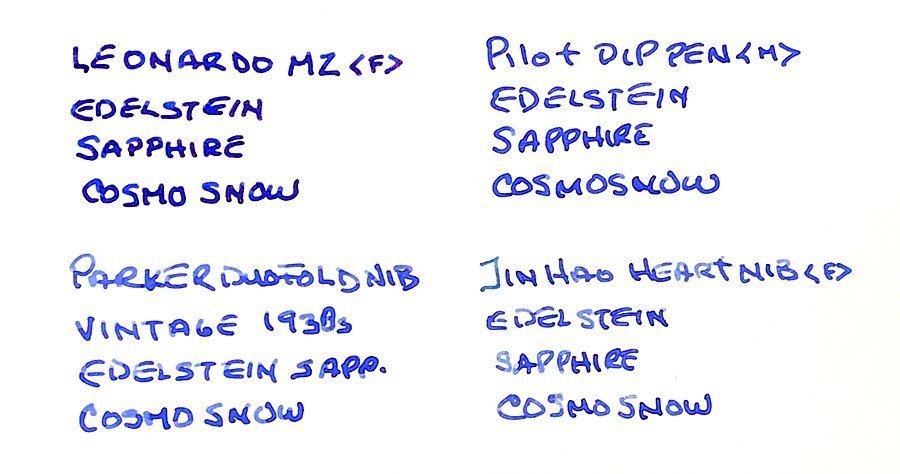 LEONARDO MZ <F>
EDELSTEIN
SAPPHIRE
COSMO SNOW
Pilot DIP PEN <M>
EDELSTEIN
SAPPHIRE
COSMO SNOW
PARKER DUOFOLD NIB
VINTAGE 1930s
EDELSTEIN SAPP.
COSMO SNOW
JINHAO HEART NIB <F>
EDELSTEIN
SAPPHIRE
COSMO SNOW